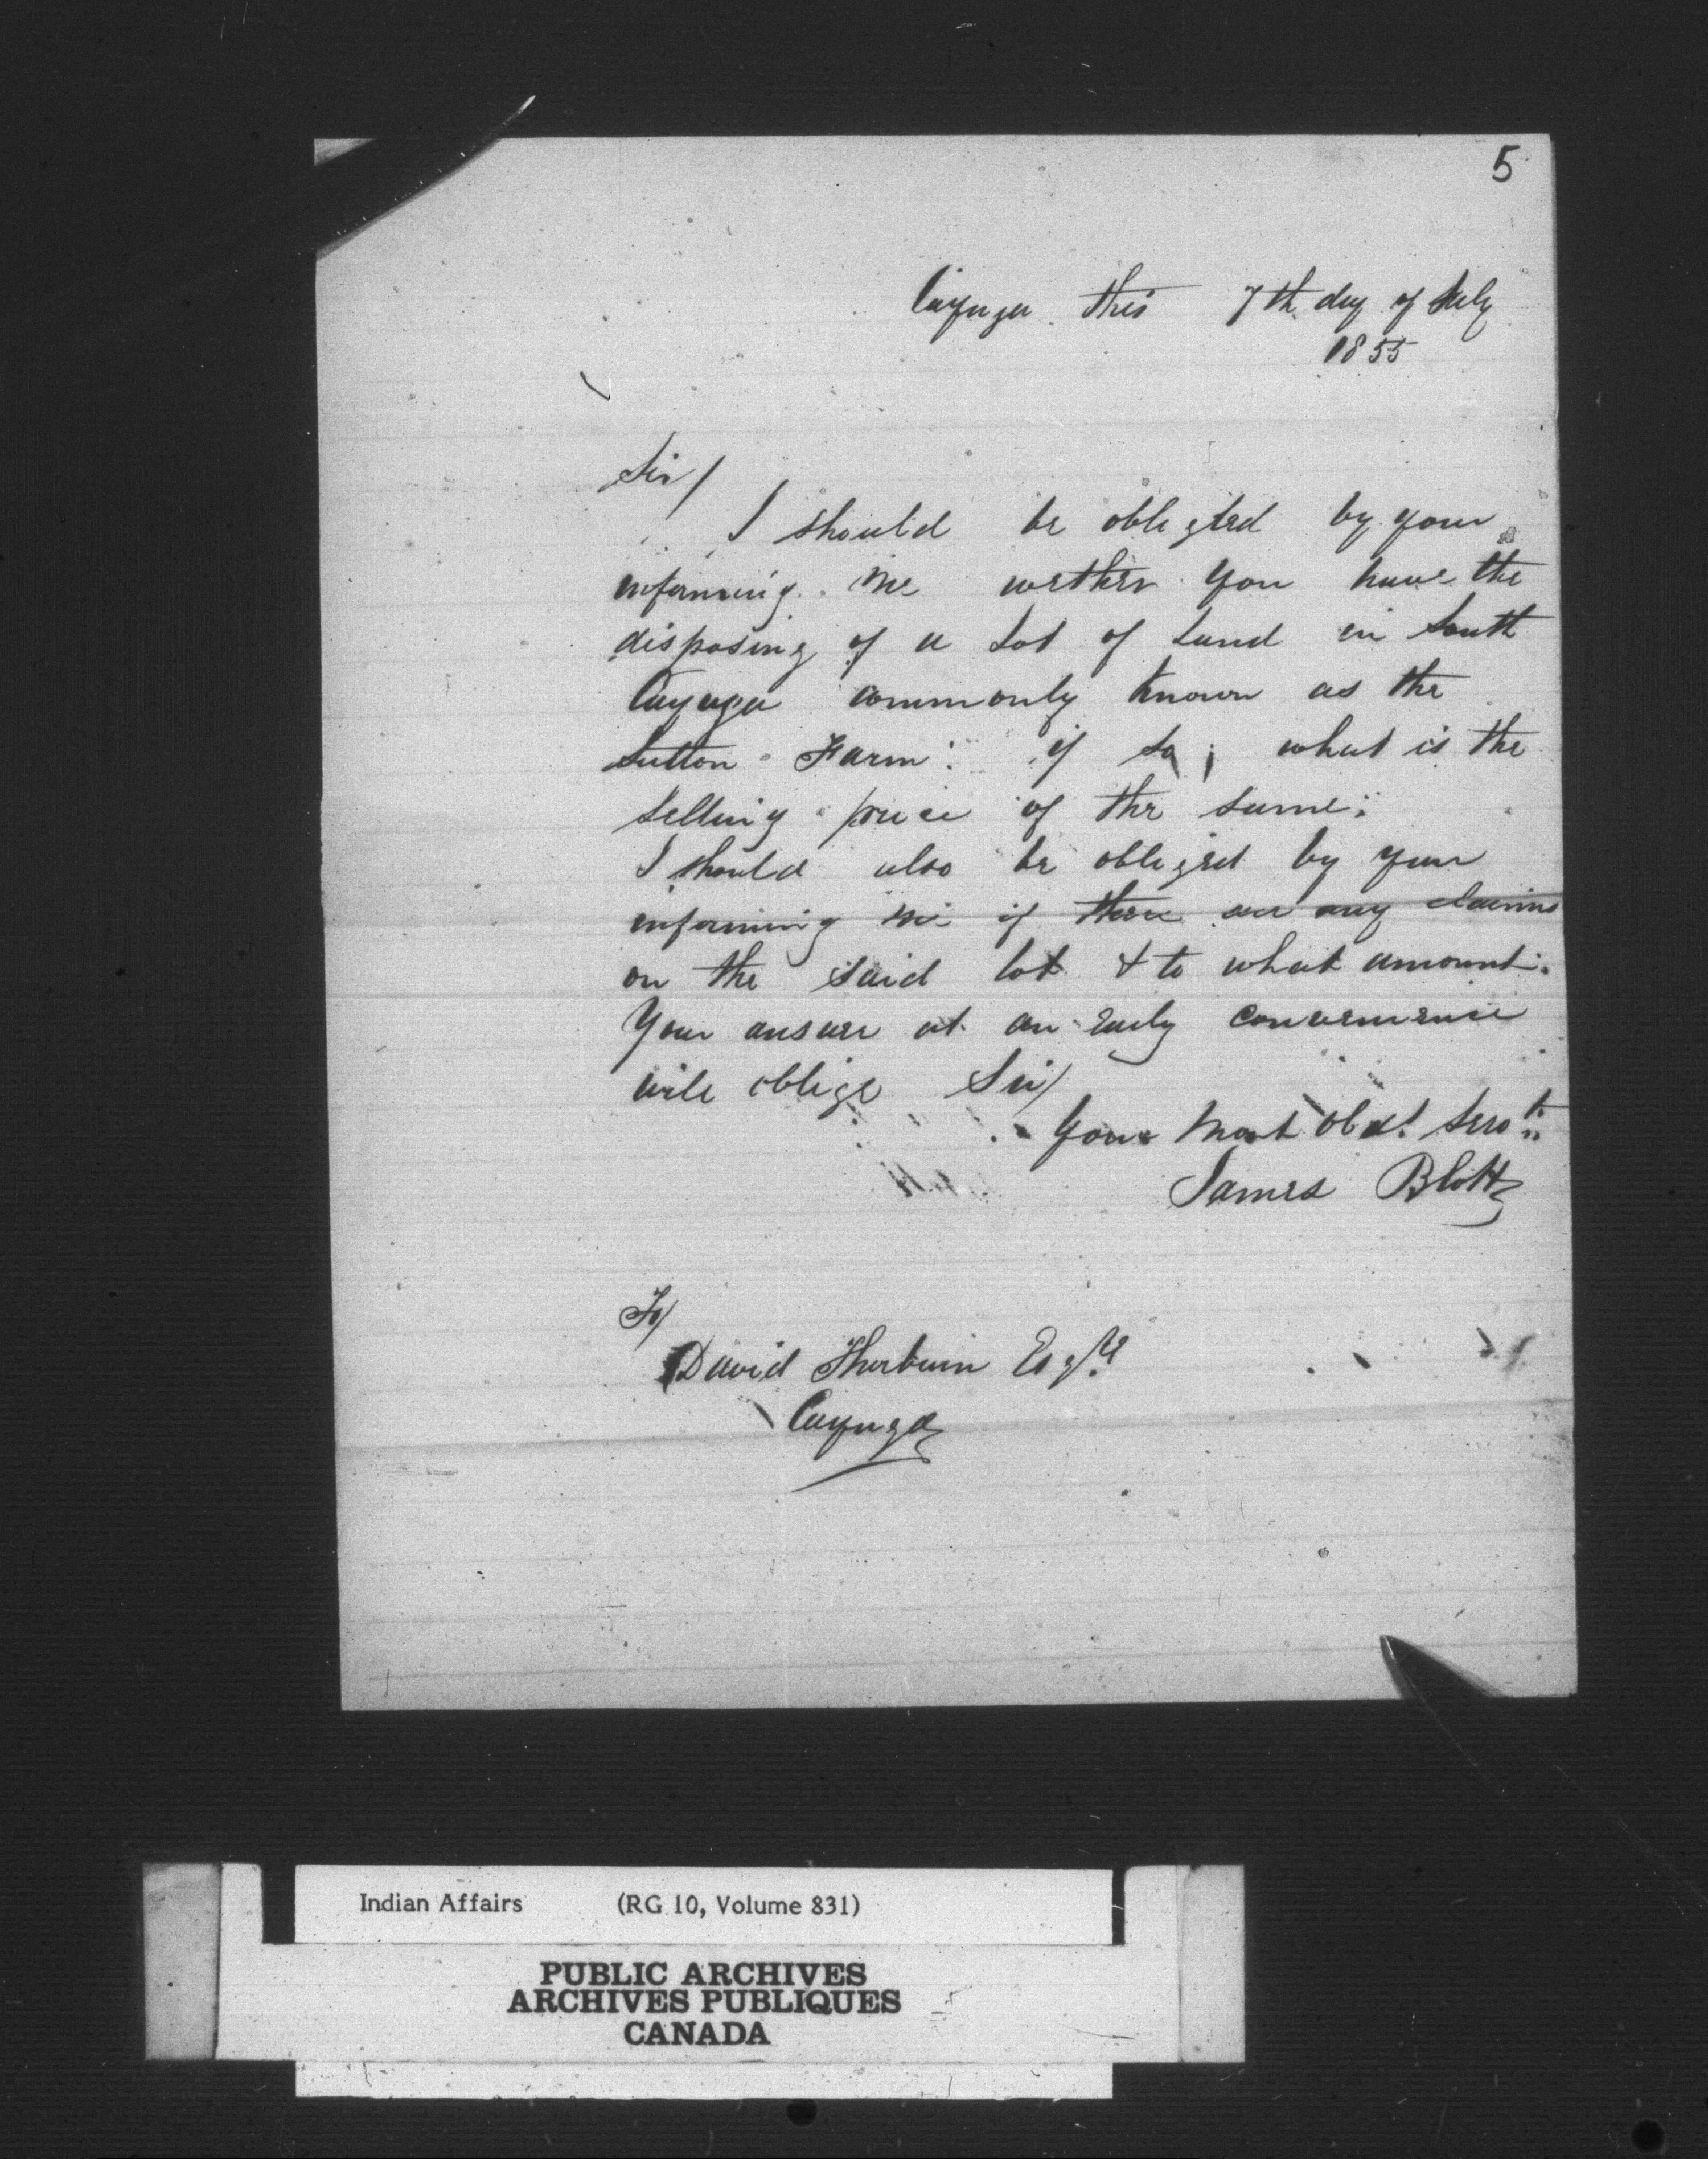 5
Cayuga this 7th day of July
1855
Sir/
I should be obliged by your
informing me wether you have the
disposing of a Lot of Land in South
Cayuga commonly known as the
Sutton Farm: if so; what is the
selling price of the same;
I should also be obliged by your
informing me if there are any claims
on the said lot & to what amount.
Your answer at an early convenience
will oblige Sir/
Your Most Obdt. Servt.
James Blott
To/
David Thorburn Esqre
Cayuga
Indian Affairs (RG 10, Volume 831)
PUBLIC ARCHIVES
ARCHIVES PUBLIQUES
CANADA